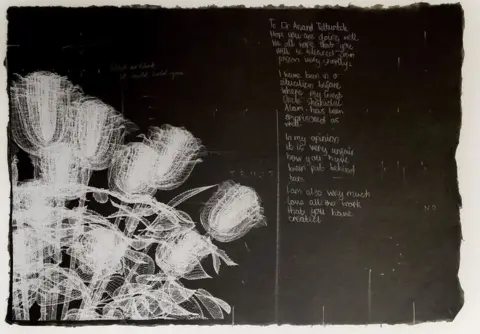 To Dr Anand Teltumbde
Hope you are doing well.
We all hope that you
will be released from
prison very shortly.
I have been in a
situation before
where my great
Uncle Shahidul
Alam has been
imprisoned as
well.
In my opinion
it is very unfair
how you have
been put behind
bars.
I am also very much
love all the work
that you have
created